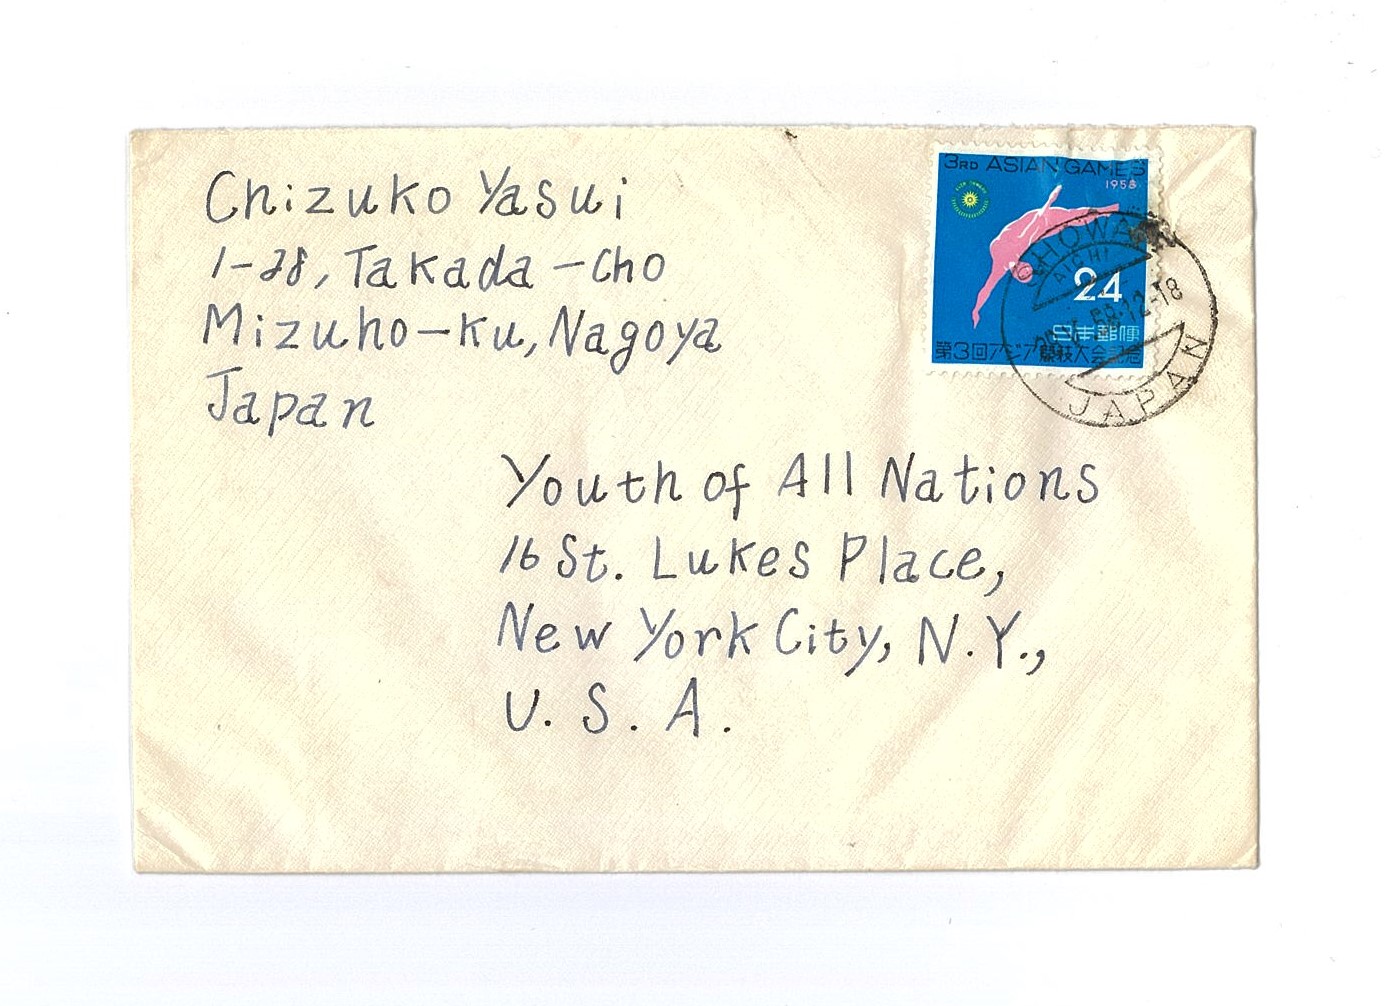 Chizuko Yasui
1-28, Takada-cho
Mizuho-ku, Nagoya
Japan
3RD ASIAN GAMES
1958
24
日本郵便
第3回アジア競技大会記念
SHOWA
AICHI
58.12-18
JAPAN
Youth of All Nations
16 St. Lukes Place,
New York City, N.Y.,
U. S. A.